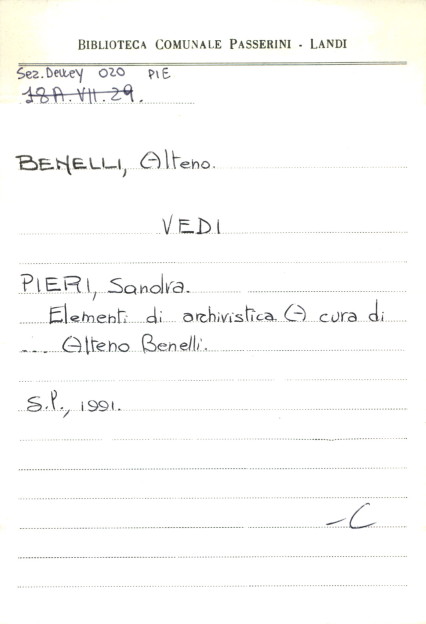 BIBLIOTECA COMUNALE PASSERINI - LANDI
Sez. Dewey 020 PIE
18A.VII.29.
BENELLI, Alteno.
VEDI
PIERI, Sandra.
Elementi di archivistica. A cura di
... Alteno Benelli.
S.l., 1991.
-C